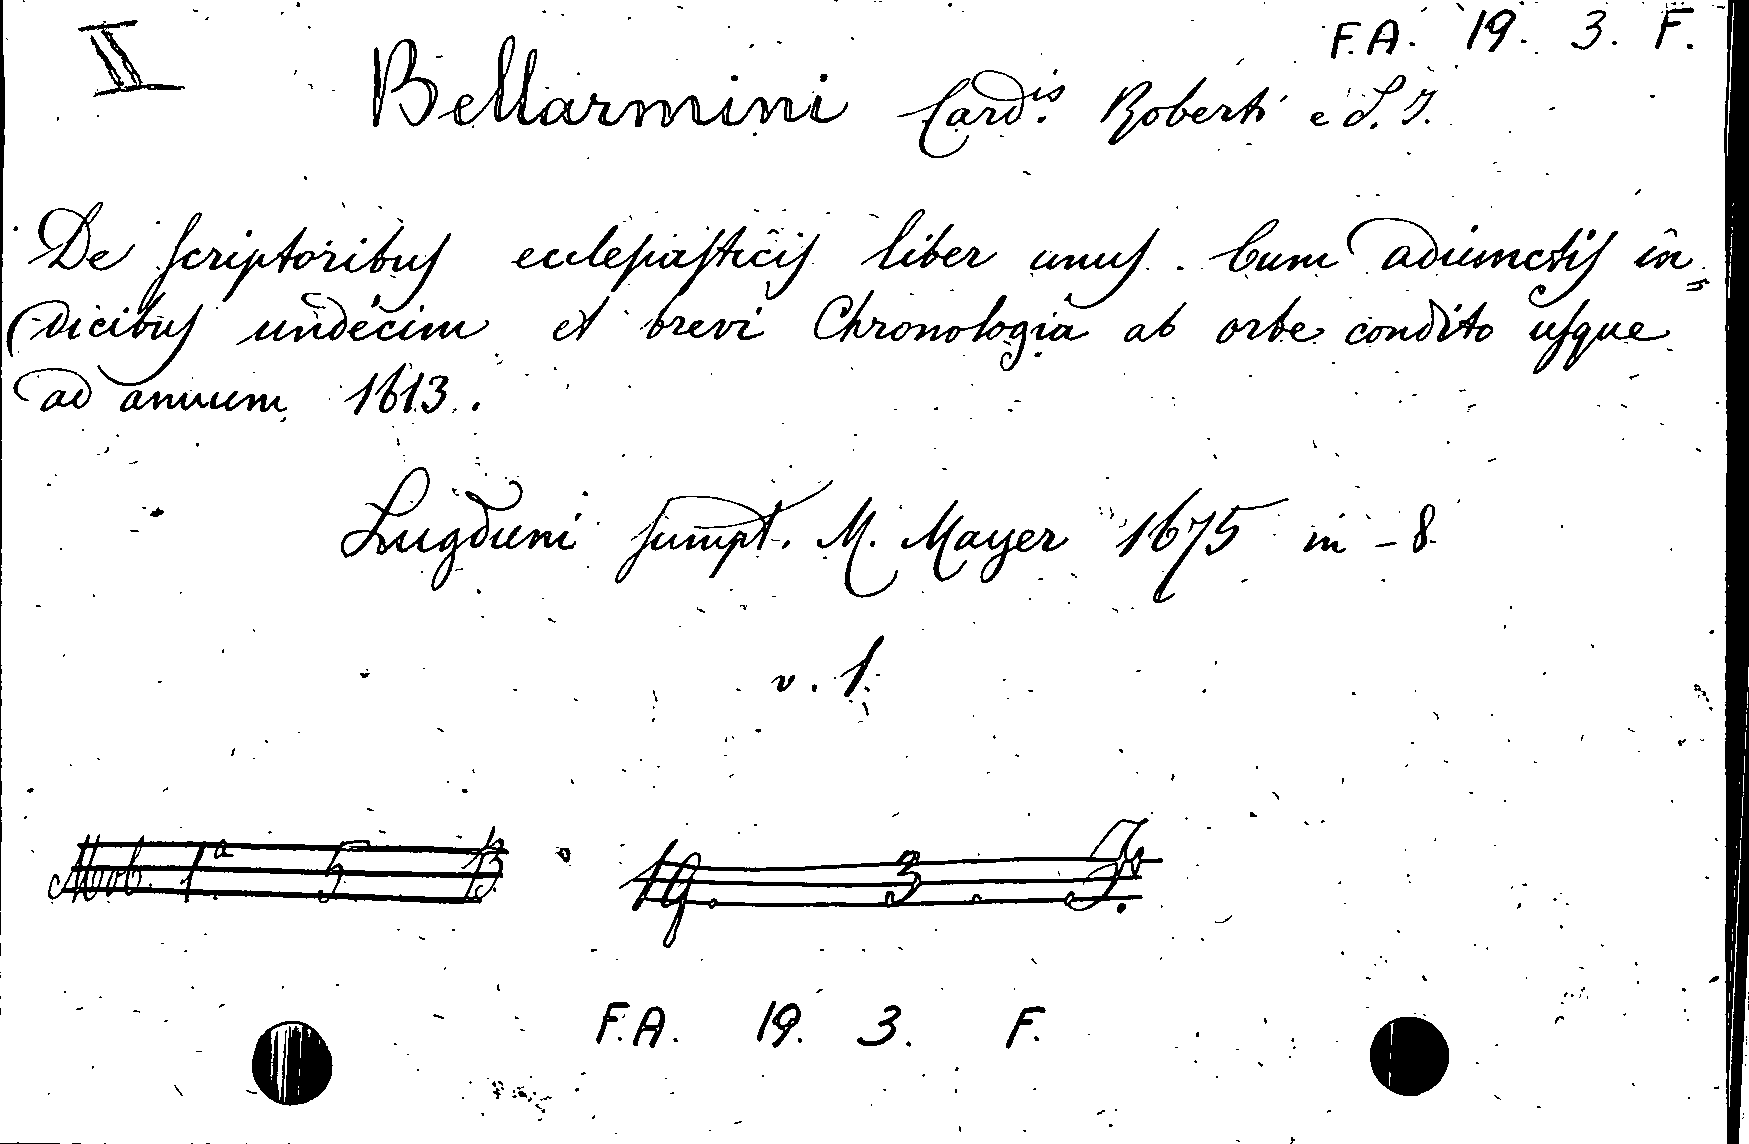 II
F.A. 19. 3. F.
Bellarmini Card.is Roberti e S.J.
De scriptoribus ecclesiasticis liber unus. Cum adiunctis in=
dicibus undecim et brevi Chronologia ab orbe condito usque
ad annum 1613.
Lugduni sumpt. M. Mayer 1675 in-8
v. 1.
Mob. 1a. 5 B. 19. 3. F.
F.A. 19. 3. F.